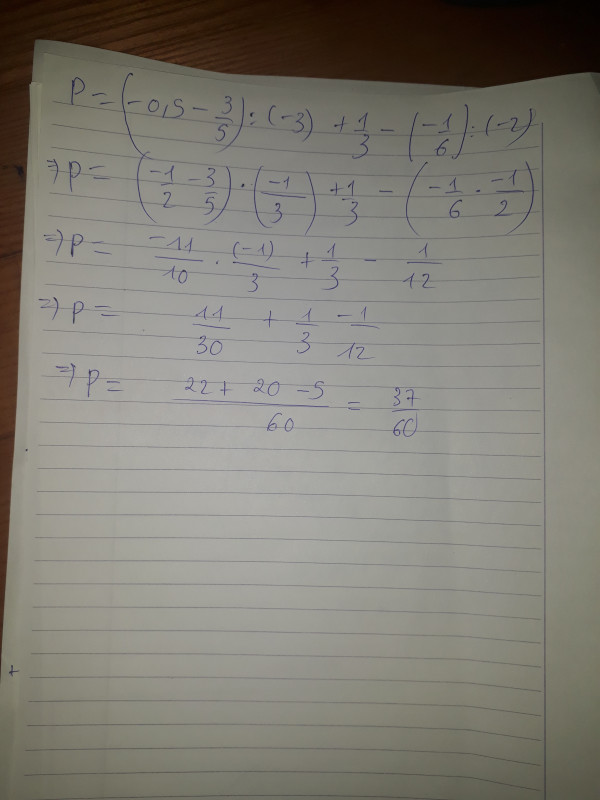 P = (-0,5 - 3/5) : (-3) + 1/3 - (-1/6) : (-2)
=> P = (-1/2 - 3/5) · (-1/3) + 1/3 - (-1/6 · -1/2)
=> P = -11/10 · (-1)/3 + 1/3 - 1/12
=> P = 11/30 + 1/3 -1/12
=> P = 22 + 20 - 5/60 = 37/60
+